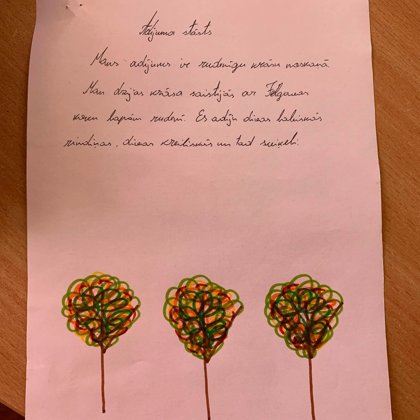 Adījuma stāsts
Mans adījums ir rudenīgu krāsu noskaņā.
Man dzijas krāsa saistījās ar Jelgavas
koku lapām rudenī. Es adīju divas labiskās
rindiņas, divas kreiliskās un tad